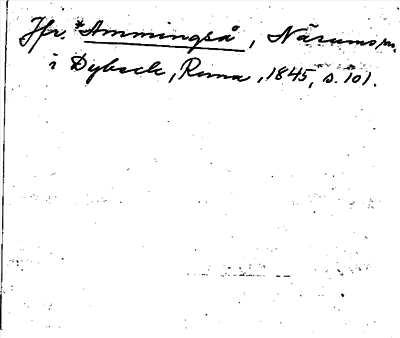 Jfr. *Ammingså, Närums sn.
i Dybeck, Runa, 1845, s. 101.